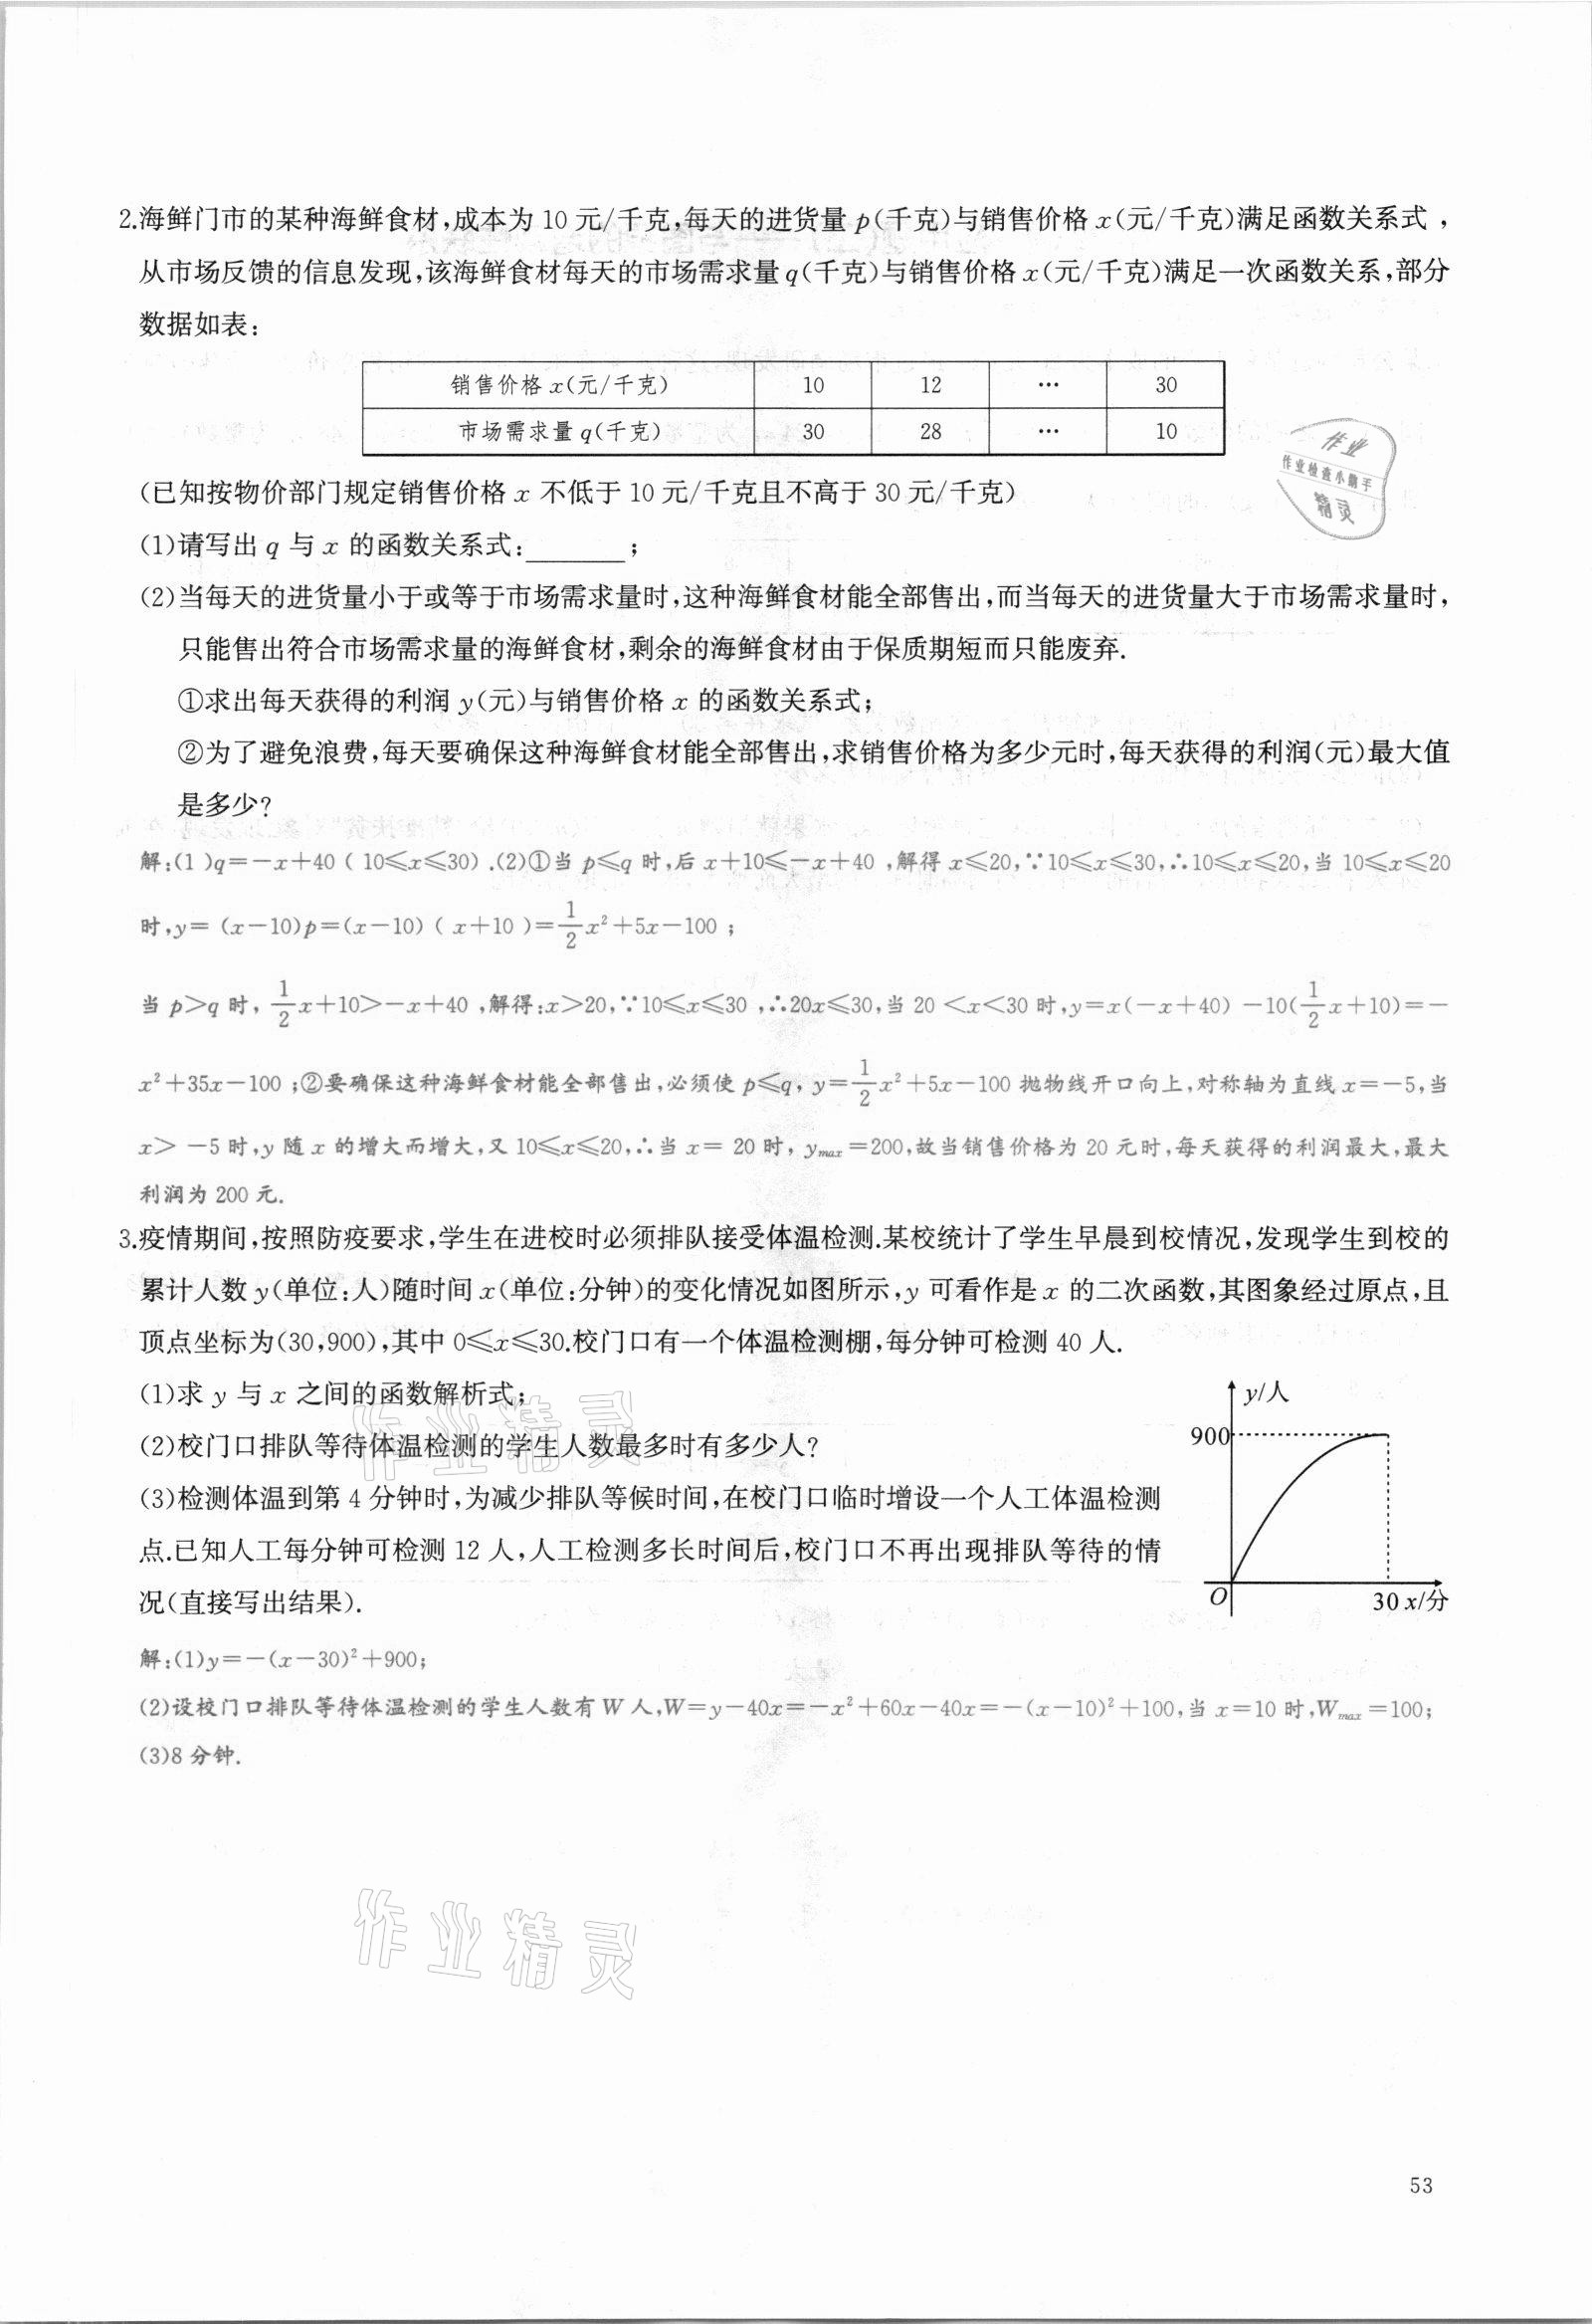 2.海鲜门市的某种海鲜食材,成本为 10 元/千克,每天的进货量 p(千克)与销售价格 x(元/千克)满足函数关系式 ,
从市场反馈的信息发现,该海鲜食材每天的市场需求量 q(千克)与销售价格 x(元/千克)满足一次函数关系,部分
数据如表:
销售价格 x(元/千克) 10 12 … 30
市场需求量 q(千克) 30 28 … 10
(已知按物价部门规定销售价格 x 不低于 10 元/千克且不高于 30 元/千克)
(1)请写出 q 与 x 的函数关系式:________;
(2)当每天的进货量小于或等于市场需求量时,这种海鲜食材能全部售出,而当每天的进货量大于市场需求量时,
只能售出符合市场需求量的海鲜食材,剩余的海鲜食材由于保质期短而只能废弃.
①求出每天获得的利润 y(元)与销售价格 x 的函数关系式;
②为了避免浪费,每天要确保这种海鲜食材能全部售出,求销售价格为多少元时,每天获得的利润(元)最大值
是多少?
解:(1 )q=-x+40 ( 10≤x≤30) .(2)①当 p≤q 时,后 x+10≤-x+40 ,解得 x≤20,∵10≤x≤30,∴10≤x≤20,当 10≤x≤20
时,y= (x-10)p=(x-10) ( x+10 )=1/2x²+5x-100 ;
当 p>q 时, 1/2x+10>-x+40 ,解得:x>20,∵10≤x≤30 ,∴20x≤30,当 20 <x<30 时,y=x(-x+40) -10(1/2x+10)=-
x²+35x-100 ;②要确保这种海鲜食材能全部售出,必须使 p≤q, y=1/2x²+5x-100 抛物线开口向上,对称轴为直线 x=-5,当
x> -5 时,y 随 x 的增大而增大,又 10≤x≤20,∴当 x= 20 时, ymax=200,故当销售价格为 20 元时,每天获得的利润最大,最大
利润为 200 元.
3.疫情期间,按照防疫要求,学生在进校时必须排队接受体温检测.某校统计了学生早晨到校情况,发现学生到校的
累计人数 y(单位:人)随时间 x(单位:分钟)的变化情况如图所示,y 可看作是 x 的二次函数,其图象经过原点,且
顶点坐标为(30,900),其中 0≤x≤30.校门口有一个体温检测棚,每分钟可检测 40 人.
(1)求 y 与 x 之间的函数解析式;
(2)校门口排队等待体温检测的学生人数最多时有多少人?
(3)检测体温到第 4 分钟时,为减少排队等候时间,在校门口临时增设一个人工体温检测
点.已知人工每分钟可检测 12 人,人工检测多长时间后,校门口不再出现排队等待的情
况(直接写出结果).
y/人
900
O
30 x/分
解:(1)y=-(x-30)²+900;
(2)设校门口排队等待体温检测的学生人数有 W 人,W=y-40x=-x²+60x-40x=-(x-10)²+100,当 x=10 时,Wmax=100;
(3)8 分钟.
作业
作业检查小助手
精灵
作业精灵
作业精灵
53